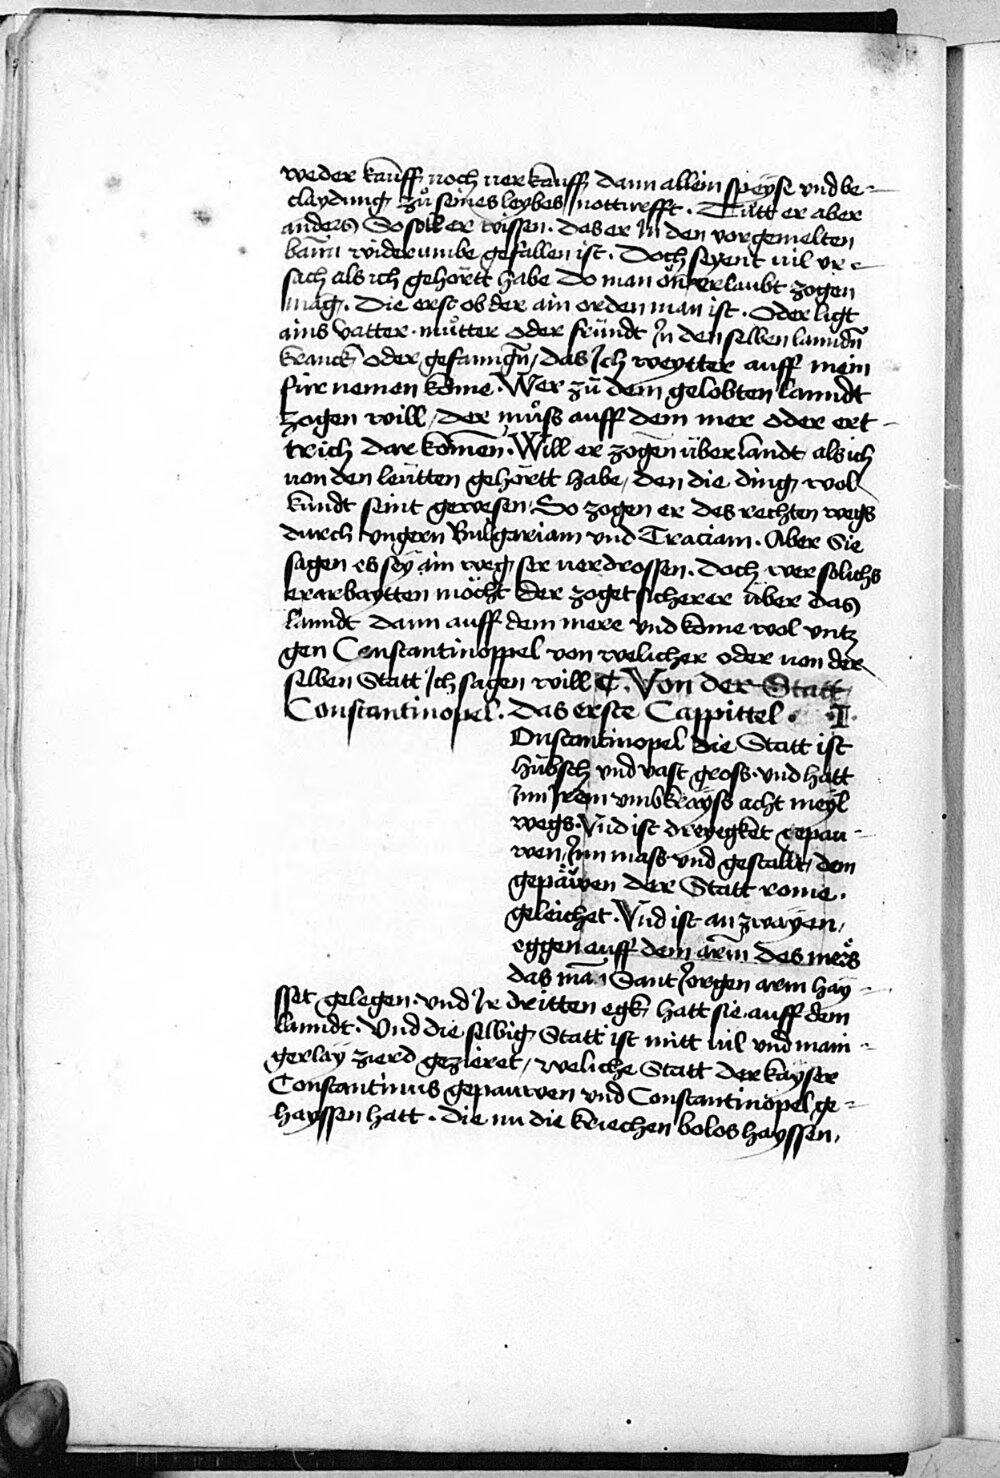 weder kauff noch verkauff dann allein speyse vnd be-
claydung zů seines leybes notturfft. Tůtt er aber
anders So soll er wissen. Das er In den vorgemelten
bann widerumbe gefallen ist. Doch seyent vil vr-
sach als ich gehörtt habe Do man on erlaubt zogen
mag. Die erst ob der ain orden man ist. Oder ligt
ains vatter můtter oder fründt In denselben lanndn
kranck oder gefanngn, das Ich weytter auff mein
für nemen kome. Wer zů dem gelobten lanndt
zogen will, der můss auff dem mer oder ert-
trich dar komen. Will er zogen über landt als ich
von den leütten gehörtt habe, den die ding wol
kundt seint gewesen, So zogen er des rechten wegs
durch vngern Bulgariam vnd Traciam. Aber Sie
sagen es sey ain weg ser verdrossen. Doch wer solichs
erarbaytten möcht Der zoget sicherer über das
lanndt dann auff dem mere vnd kome wol vntz
gen Constantinoppel von welicher oder von der
selben Statt Ich sagen will ¶. Von der Statt
Constantinopel. Das erste Cappittel. .I.
Onstantinopel die Statt ist
hübsch vnd vast gross. vnd hatt
Inn Irem vmbkrayss acht meyl
wegs. Vnd ist dreyegket gepau-
wen, Inn mass vnd gestallt, dem
gepäwen der Statt rome.
geleichet. Vnd ist an zwayen,
eggen auff dem arm des mers
das man Sant Jörgen arm hay-
sset gelegen. vnd Ir dritten egk hatt sie auff dem
lanndt. Vnd die selbig Statt ist mitt vil vnd mani-
gerlay zierd gezieret, weliche Statt der kayser
Constantinus gepauwen vnd Constantinopel ge-
hayssen hatt. die nu die kriechen bolos hayssen,